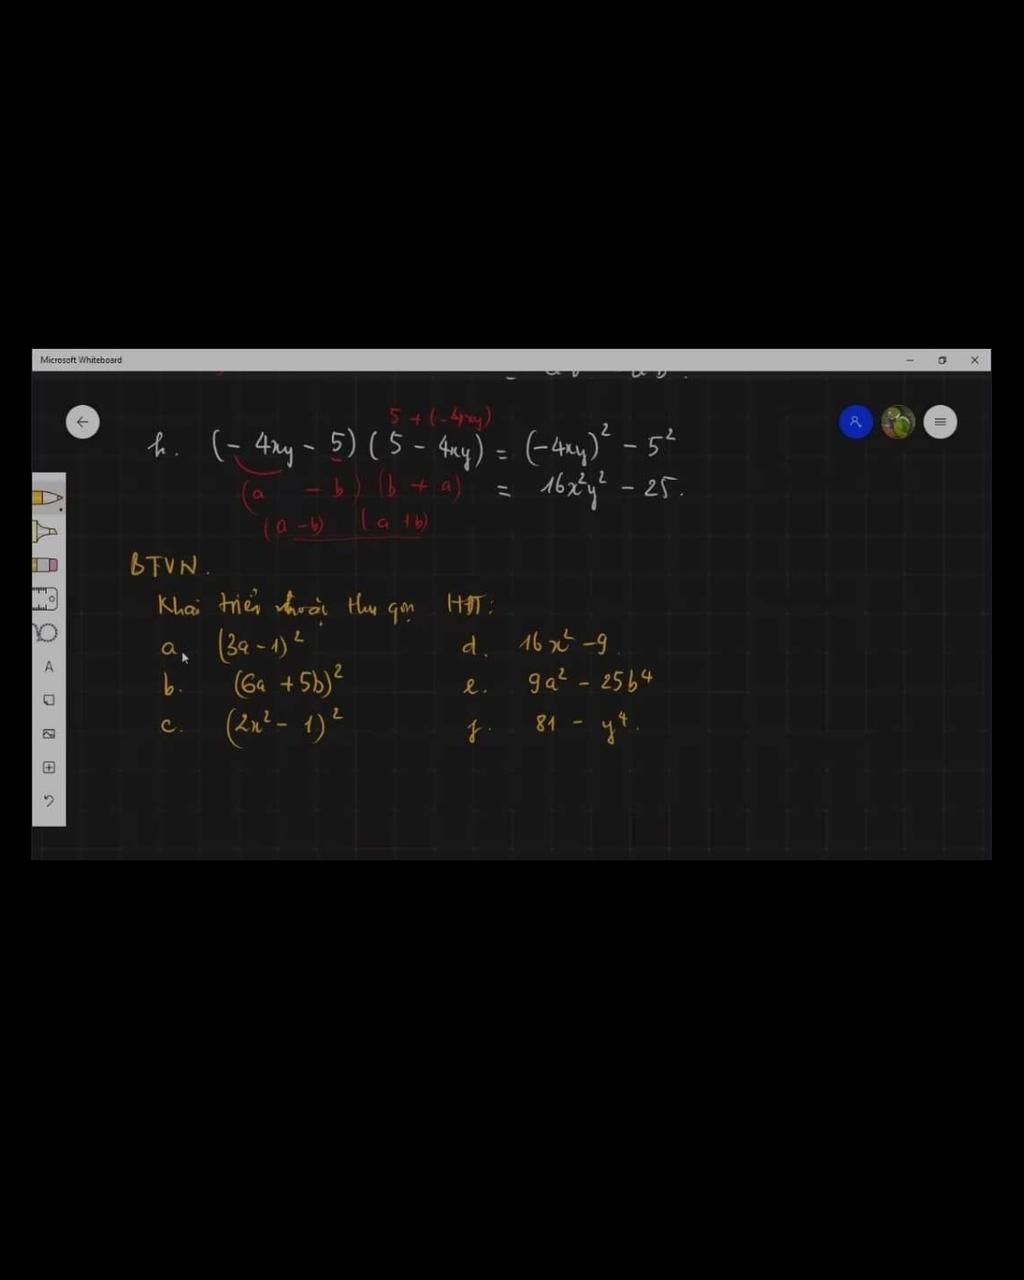 Microsoft Whiteboard
5 + (-4xy)
h. (- 4xy - 5) (5 - 4xy) = (-4xy)² - 5²
(a - b) (b + a) = 16x²y² - 25.
(a - b) (a + b)
BTVN.
Khai triển hoặc thu gọn HĐT:
a. (3a - 1)² d. 16x² - 9.
b. (6a + 5b)² e. 9a² - 25b⁴
c. (2x² - 1)² f. 81 - y⁴.
A